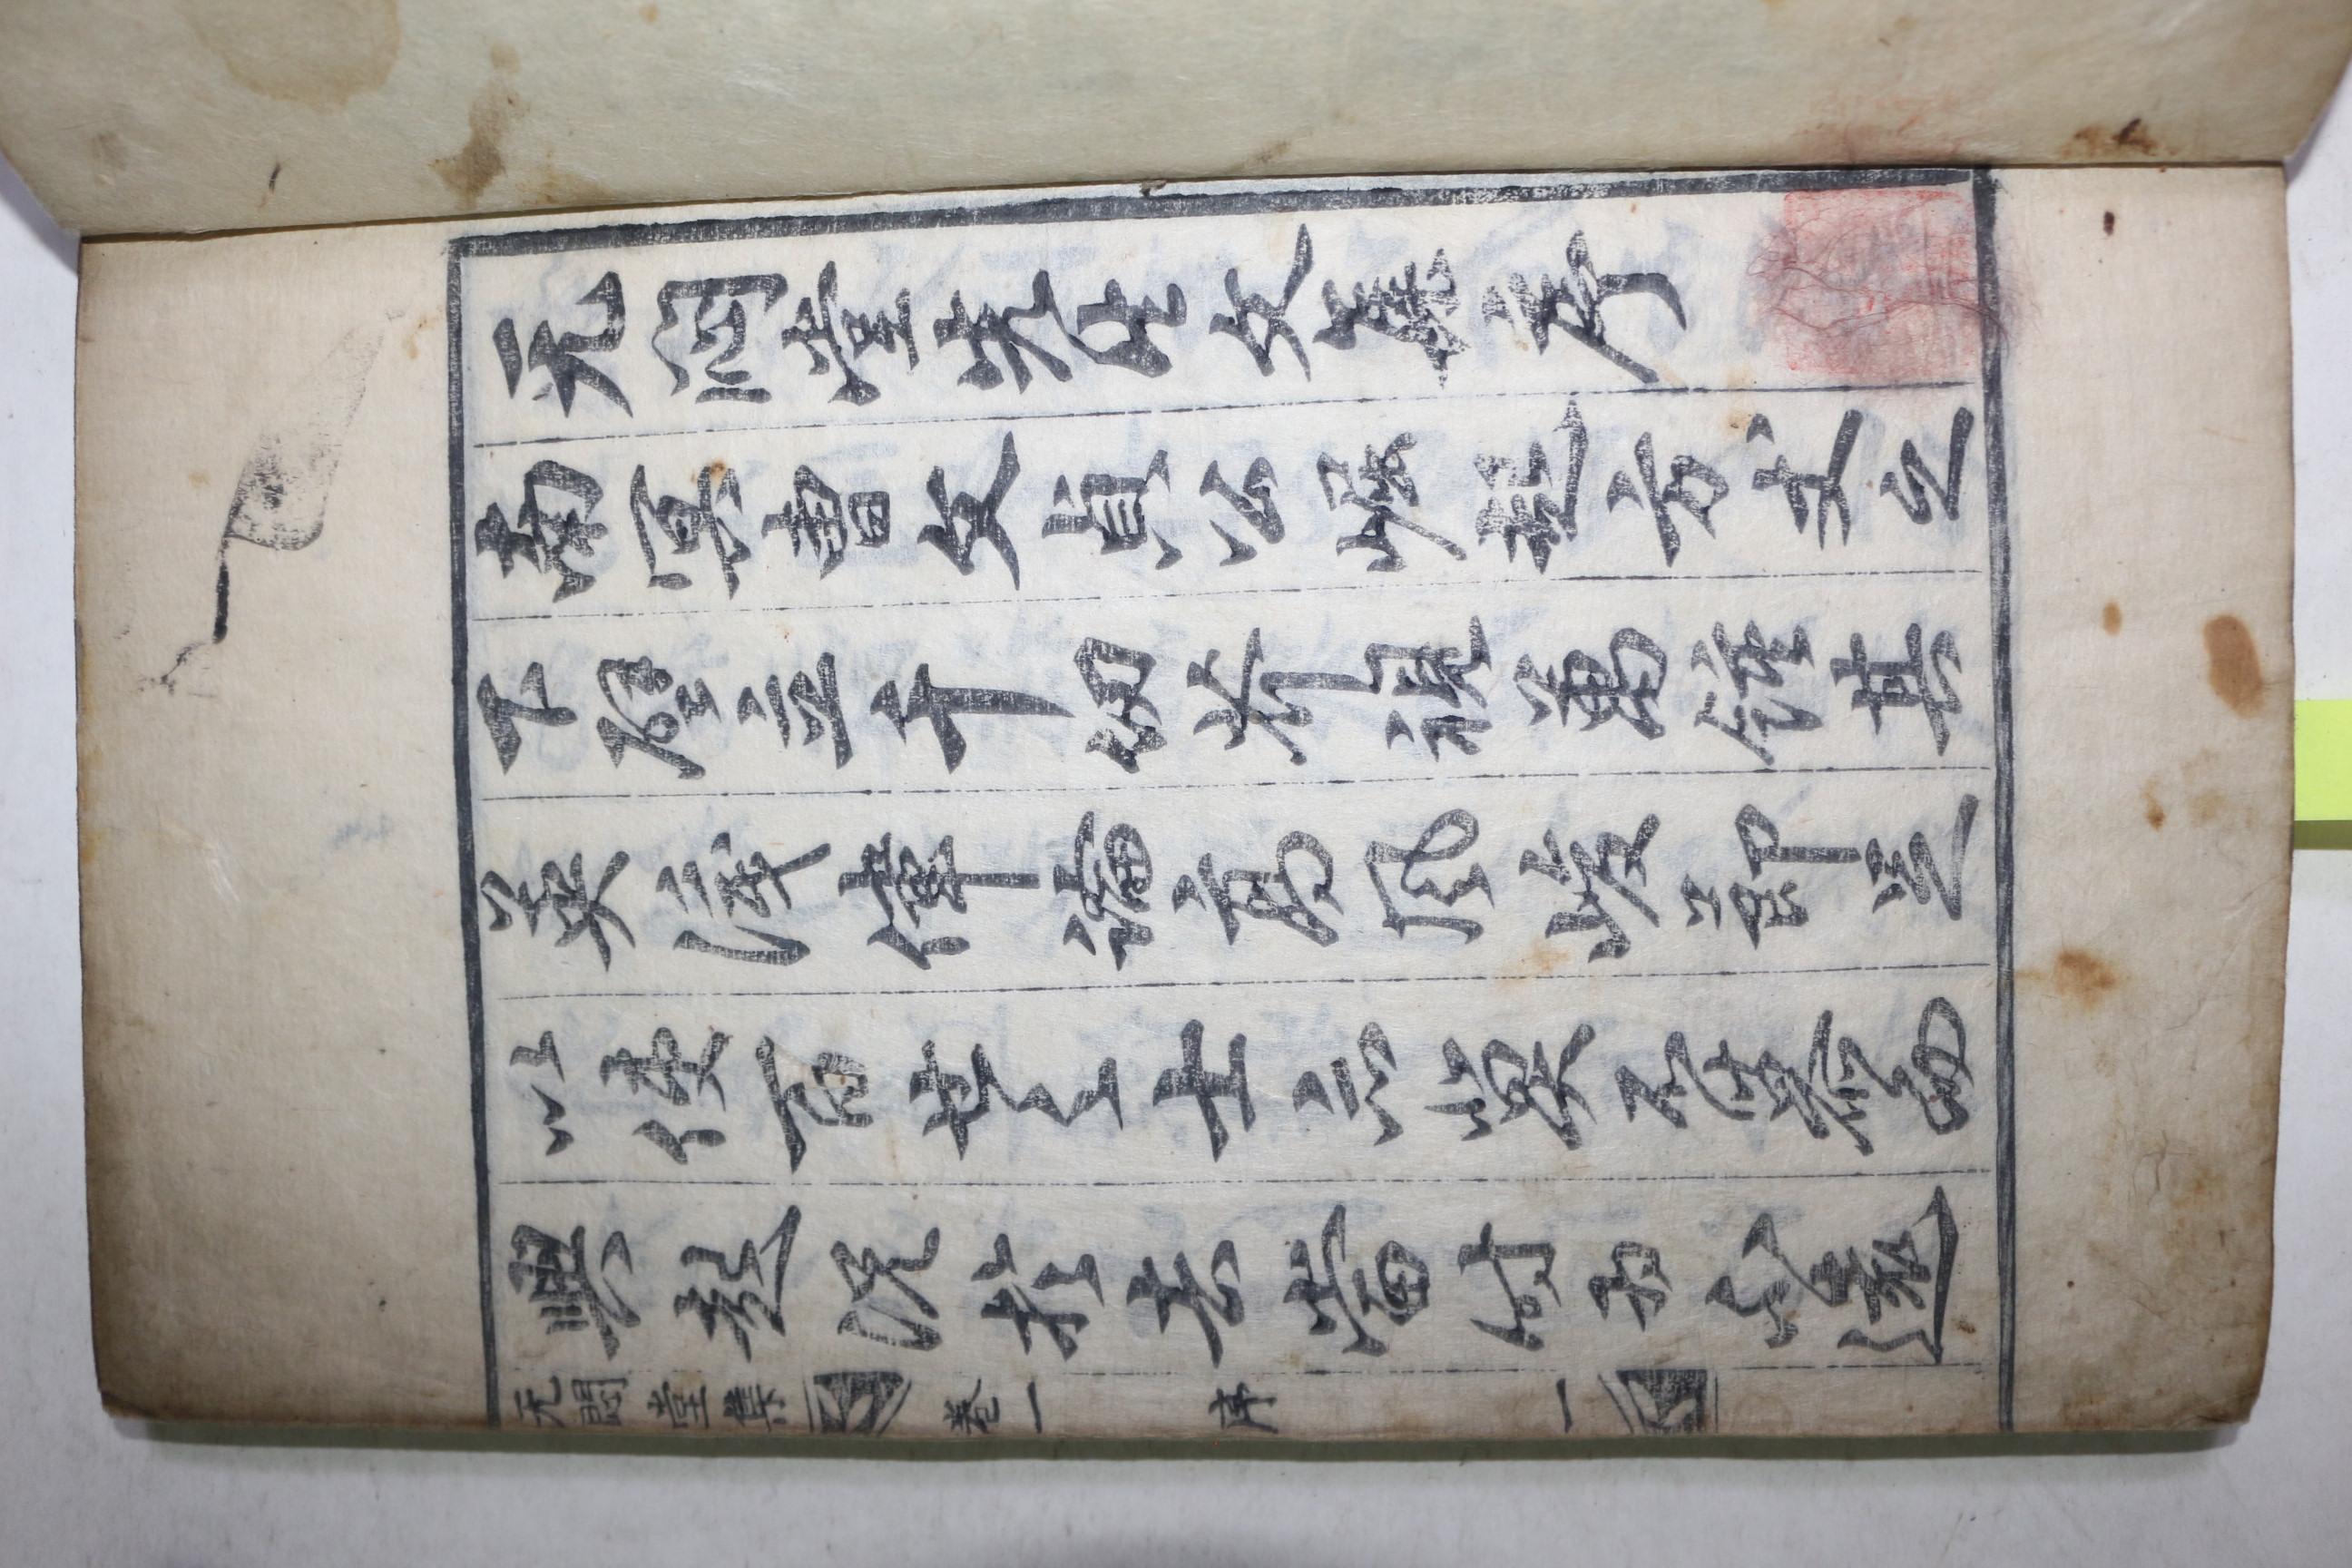 无悶堂先生文集序
南冥曺文貞公崛起方丈之
下壁立千仞芥視萬鍾其
英識偉論高風峻節足
以使百世之士亦莫不慕而
興起況於去當時而不遠
无悶堂集 卷一 序 一